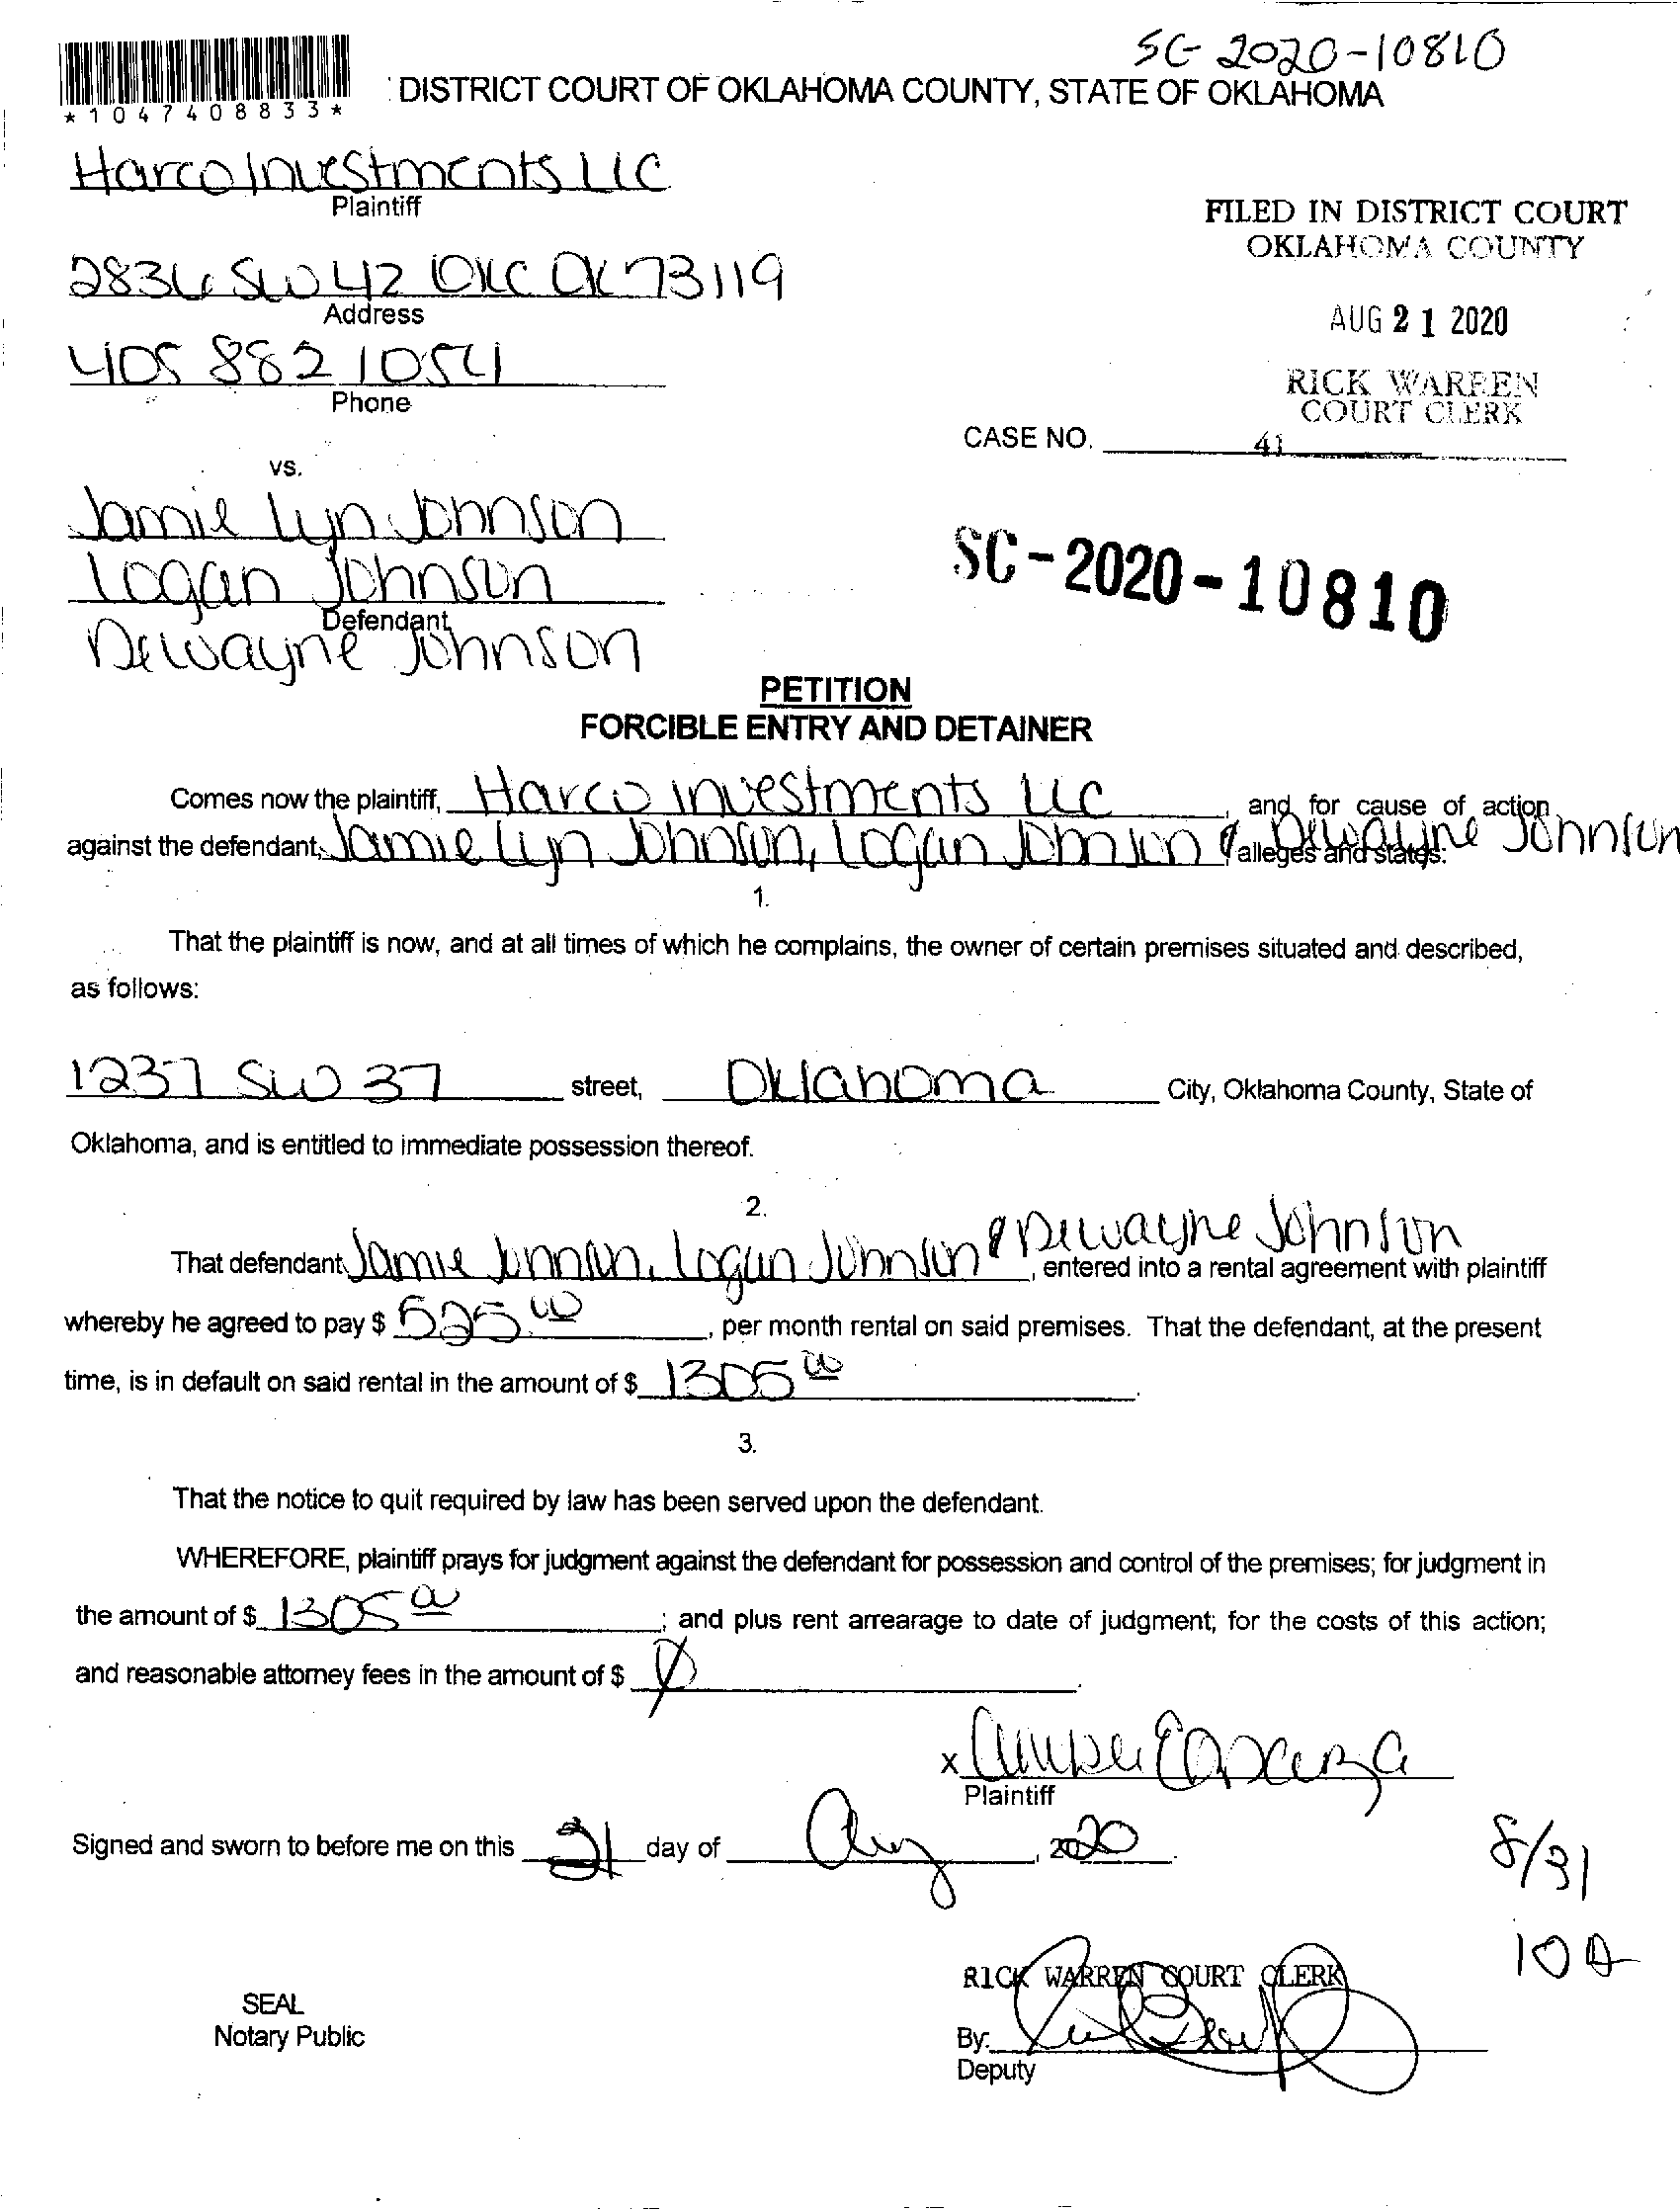 SC-2020-10810
*1047408833*
DISTRICT COURT OF OKLAHOMA COUNTY, STATE OF OKLAHOMA
Harco Investments LLC
Plaintiff
FILED IN DISTRICT COURT
OKLAHOMA COUNTY
2836 SW 42 OKC OK 73119
Address
AUG 21 2020
405 882 1054
Phone
RICK WARREN
COURT CLERK
CASE NO.
41
vs.
Jamie Lyn Johnson
Logan Johnson
Defendant
Dewayne Johnson
SC-2020-10810
PETITION
FORCIBLE ENTRY AND DETAINER
Comes now the plaintiff, Harco investments LLC, and for cause of action
against the defendant, Jamie Lyn Johnson, Logan Johnson & Dewayne Johnson, alleges and states:
1.
That the plaintiff is now, and at all times of which he complains, the owner of certain premises situated and described,
as follows:
1237 SW 37 street, Oklahoma City, Oklahoma County, State of
Oklahoma, and is entitled to immediate possession thereof.
2.
That defendant Jamie Johnson, Logan Johnson & Dewayne Johnson, entered into a rental agreement with plaintiff
whereby he agreed to pay $ 525 00, per month rental on said premises. That the defendant, at the present
time, is in default on said rental in the amount of $ 1305 00.
3.
That the notice to quit required by law has been served upon the defendant.
WHEREFORE, plaintiff prays for judgment against the defendant for possession and control of the premises; for judgment in
the amount of $ 1305 00; and plus rent arrearage to date of judgment; for the costs of this action;
and reasonable attorney fees in the amount of $ Ø.
x Amber Esparza
Plaintiff
Signed and sworn to before me on this 21 day of Aug, 2020.
8/31
10 A
RICK WARREN COURT CLERK
SEAL
Notary Public
By:
Deputy